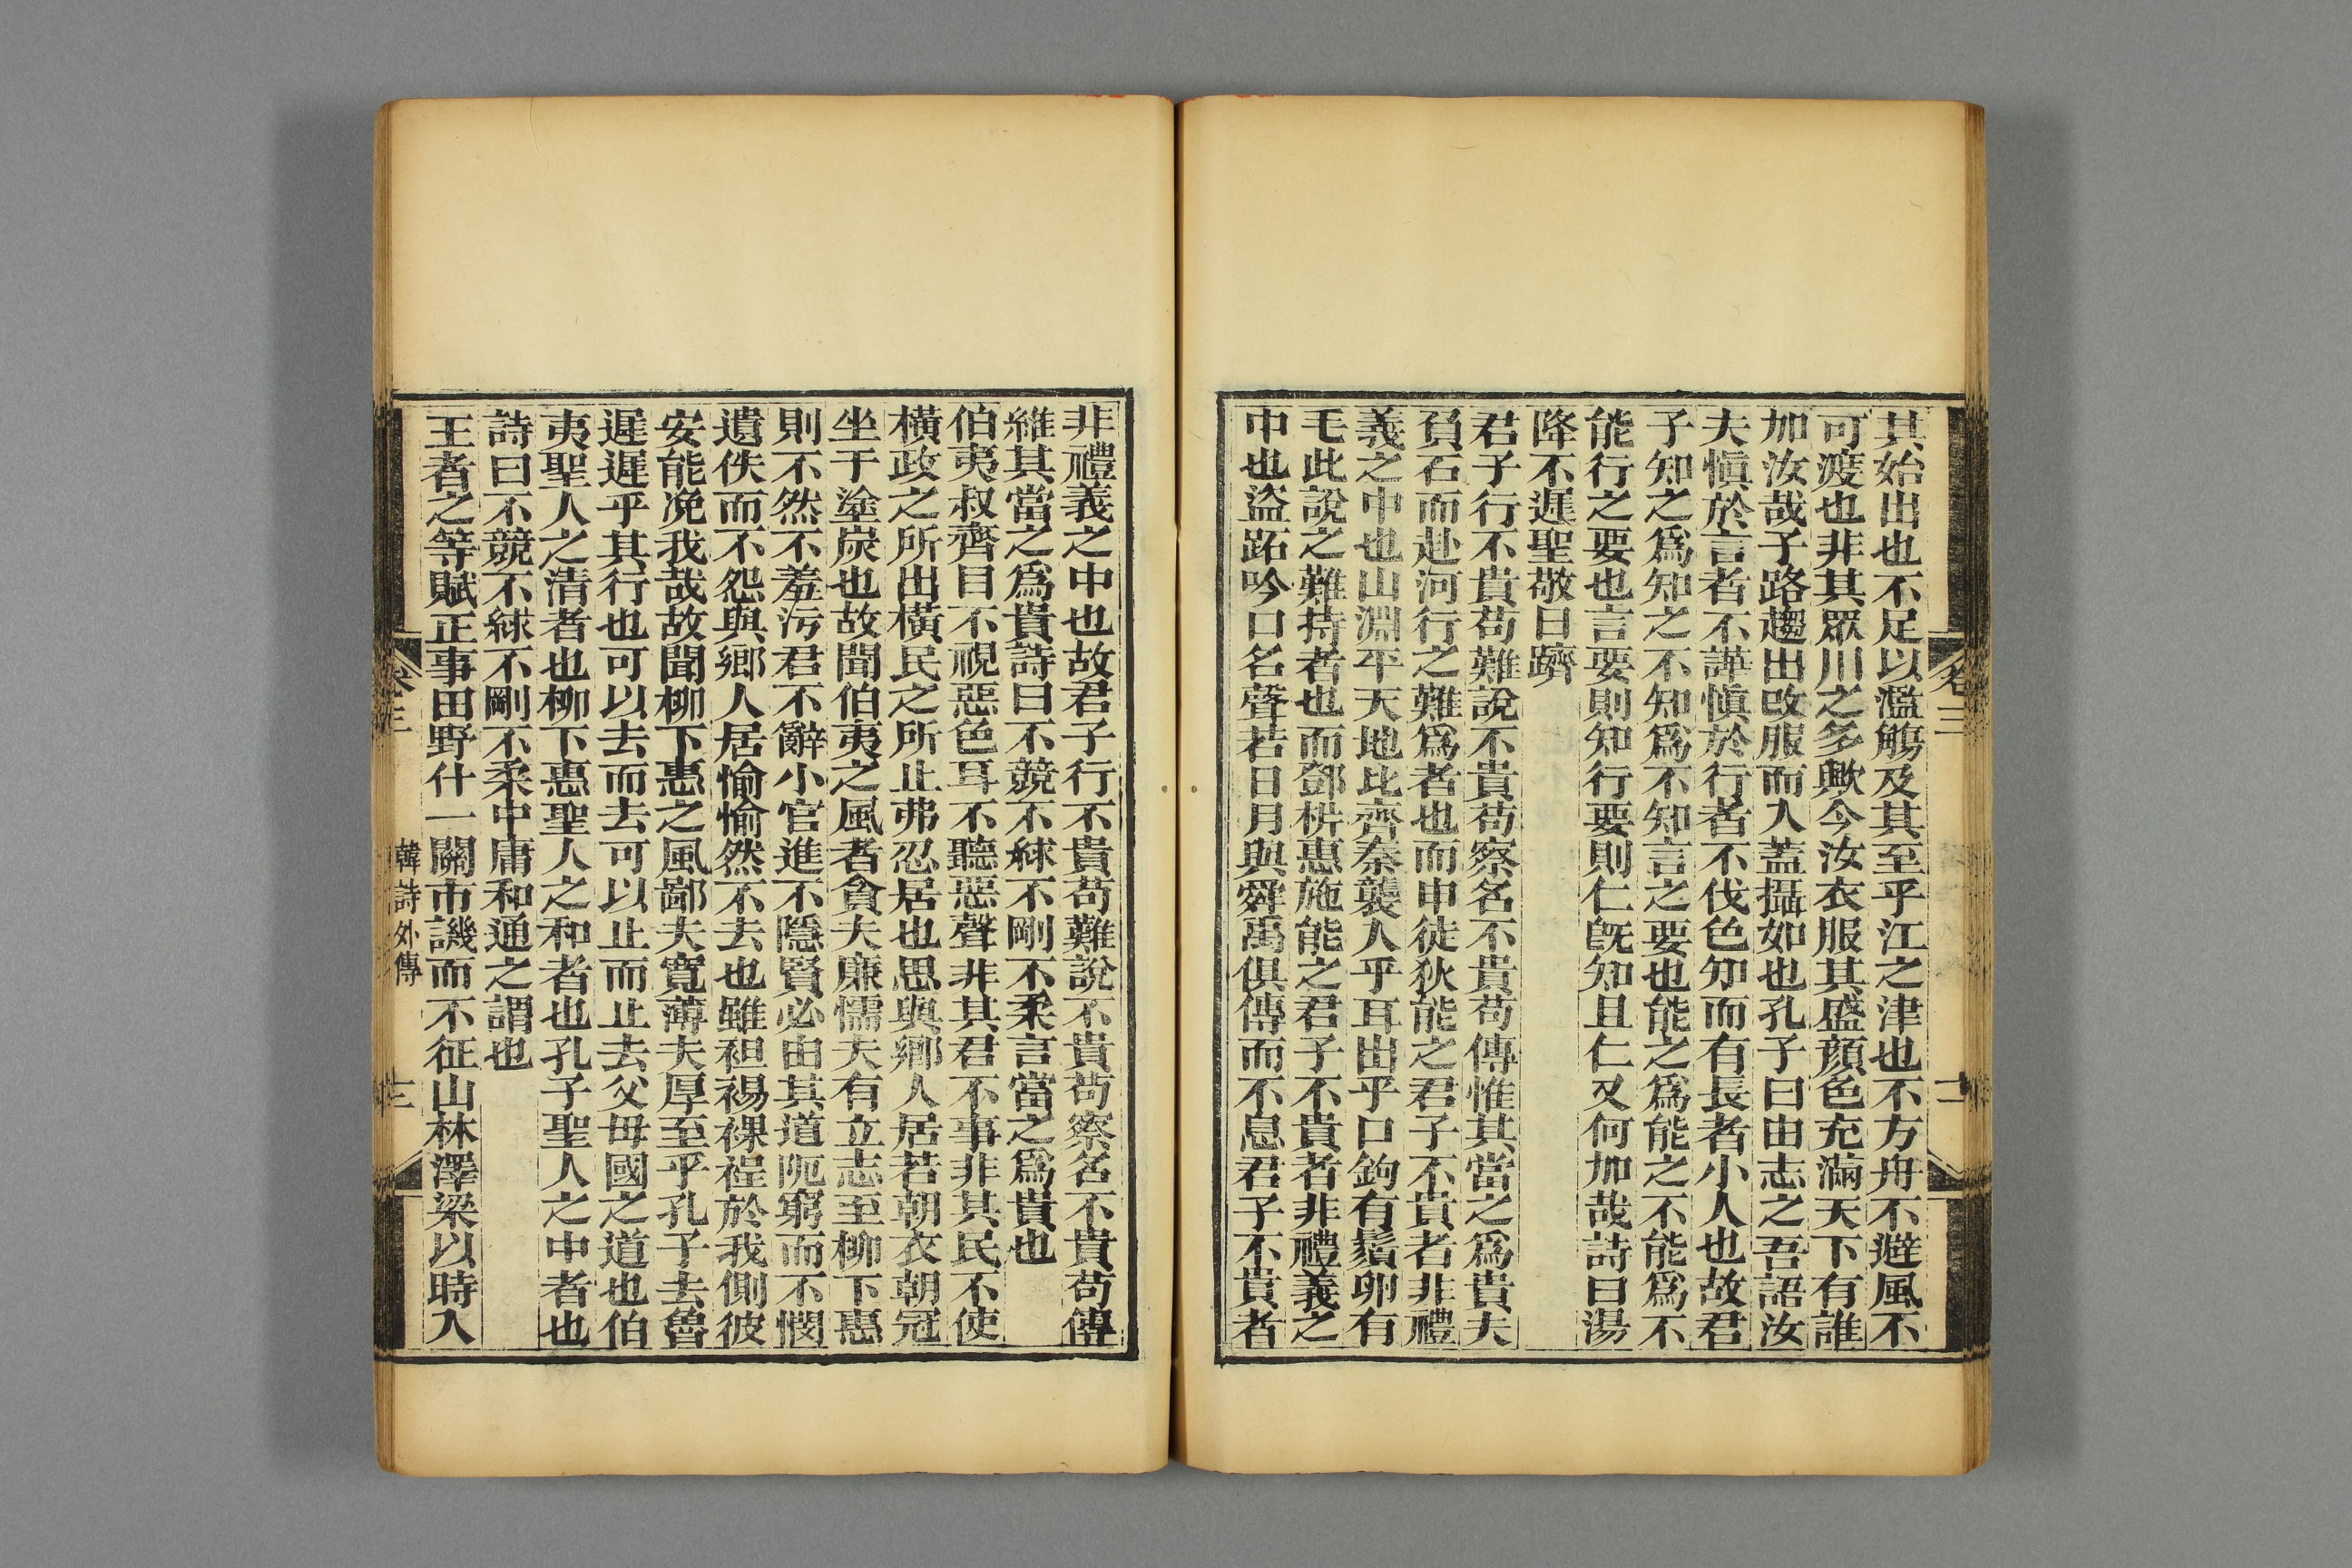 其始出也不足以濫觴及其至乎江之津也不方舟不避風不
可渡也非其眾川之多歟今汝衣服其盛顏色充滿天下有誰
加汝哉子路趨出改服而入蓋攝如也孔子曰由志之吾語汝
夫愼於言者不譁愼於行者不伐色知而有長者小人也故君
子知之爲知之不知爲不知言之要也能之爲能之不能爲不
能行之要也言要則知行要則仁旣知且仁又何加哉詩曰湯
降不遲聖敬日躋
君子行不貴苟難說不貴苟察名不貴苟傳惟其當之爲貴夫
負石而赴河行之難爲者也而申徒狄能之君子不貴者非禮
義之中也山淵平天地比齊秦襲入乎耳出乎口鉤有鬚卵有
毛此說之難持者也而鄧析惠施能之君子不貴者非禮義之
中也盜跖吟口名聲若日月與舜禹俱傳而不息君子不貴者
卷三
二
非禮義之中也故君子行不貴苟難說不貴苟察名不貴苟傳
維其當之爲貴詩曰不競不絿不剛不柔言當之爲貴也
伯夷叔齊目不視惡色耳不聽惡聲非其君不事非其民不使
橫政之所出橫民之所止弗忍居也思與鄉人居若朝衣朝冠
坐于塗炭也故聞伯夷之風者貪夫廉懦夫有立志至柳下惠
則不然不羞污君不辭小官進不隱賢必由其道阨窮而不憫
遺佚而不怨與鄉人居愉愉然不去也雖袒裼裸裎於我側彼
安能浼我哉故聞柳下惠之風鄙夫寬薄夫厚至乎孔子去魯
遲遲乎其行也可以去而去可以止而止去父母國之道也伯
夷聖人之清者也柳下惠聖人之和者也孔子聖人之中者也
詩曰不競不絿不剛不柔中庸和通之謂也
王者之等賦正事田野什一關市譏而不征山林澤梁以時入
卷三
韓詩外傳
三